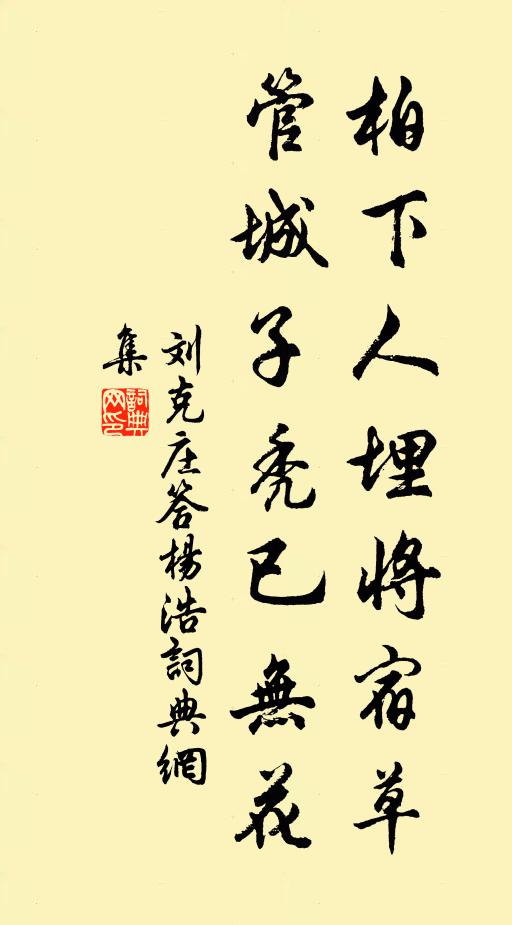 柏下人埋將宿草
管城子禿已無花
刘克庄答楊浩詞典網
集
詞典
网印